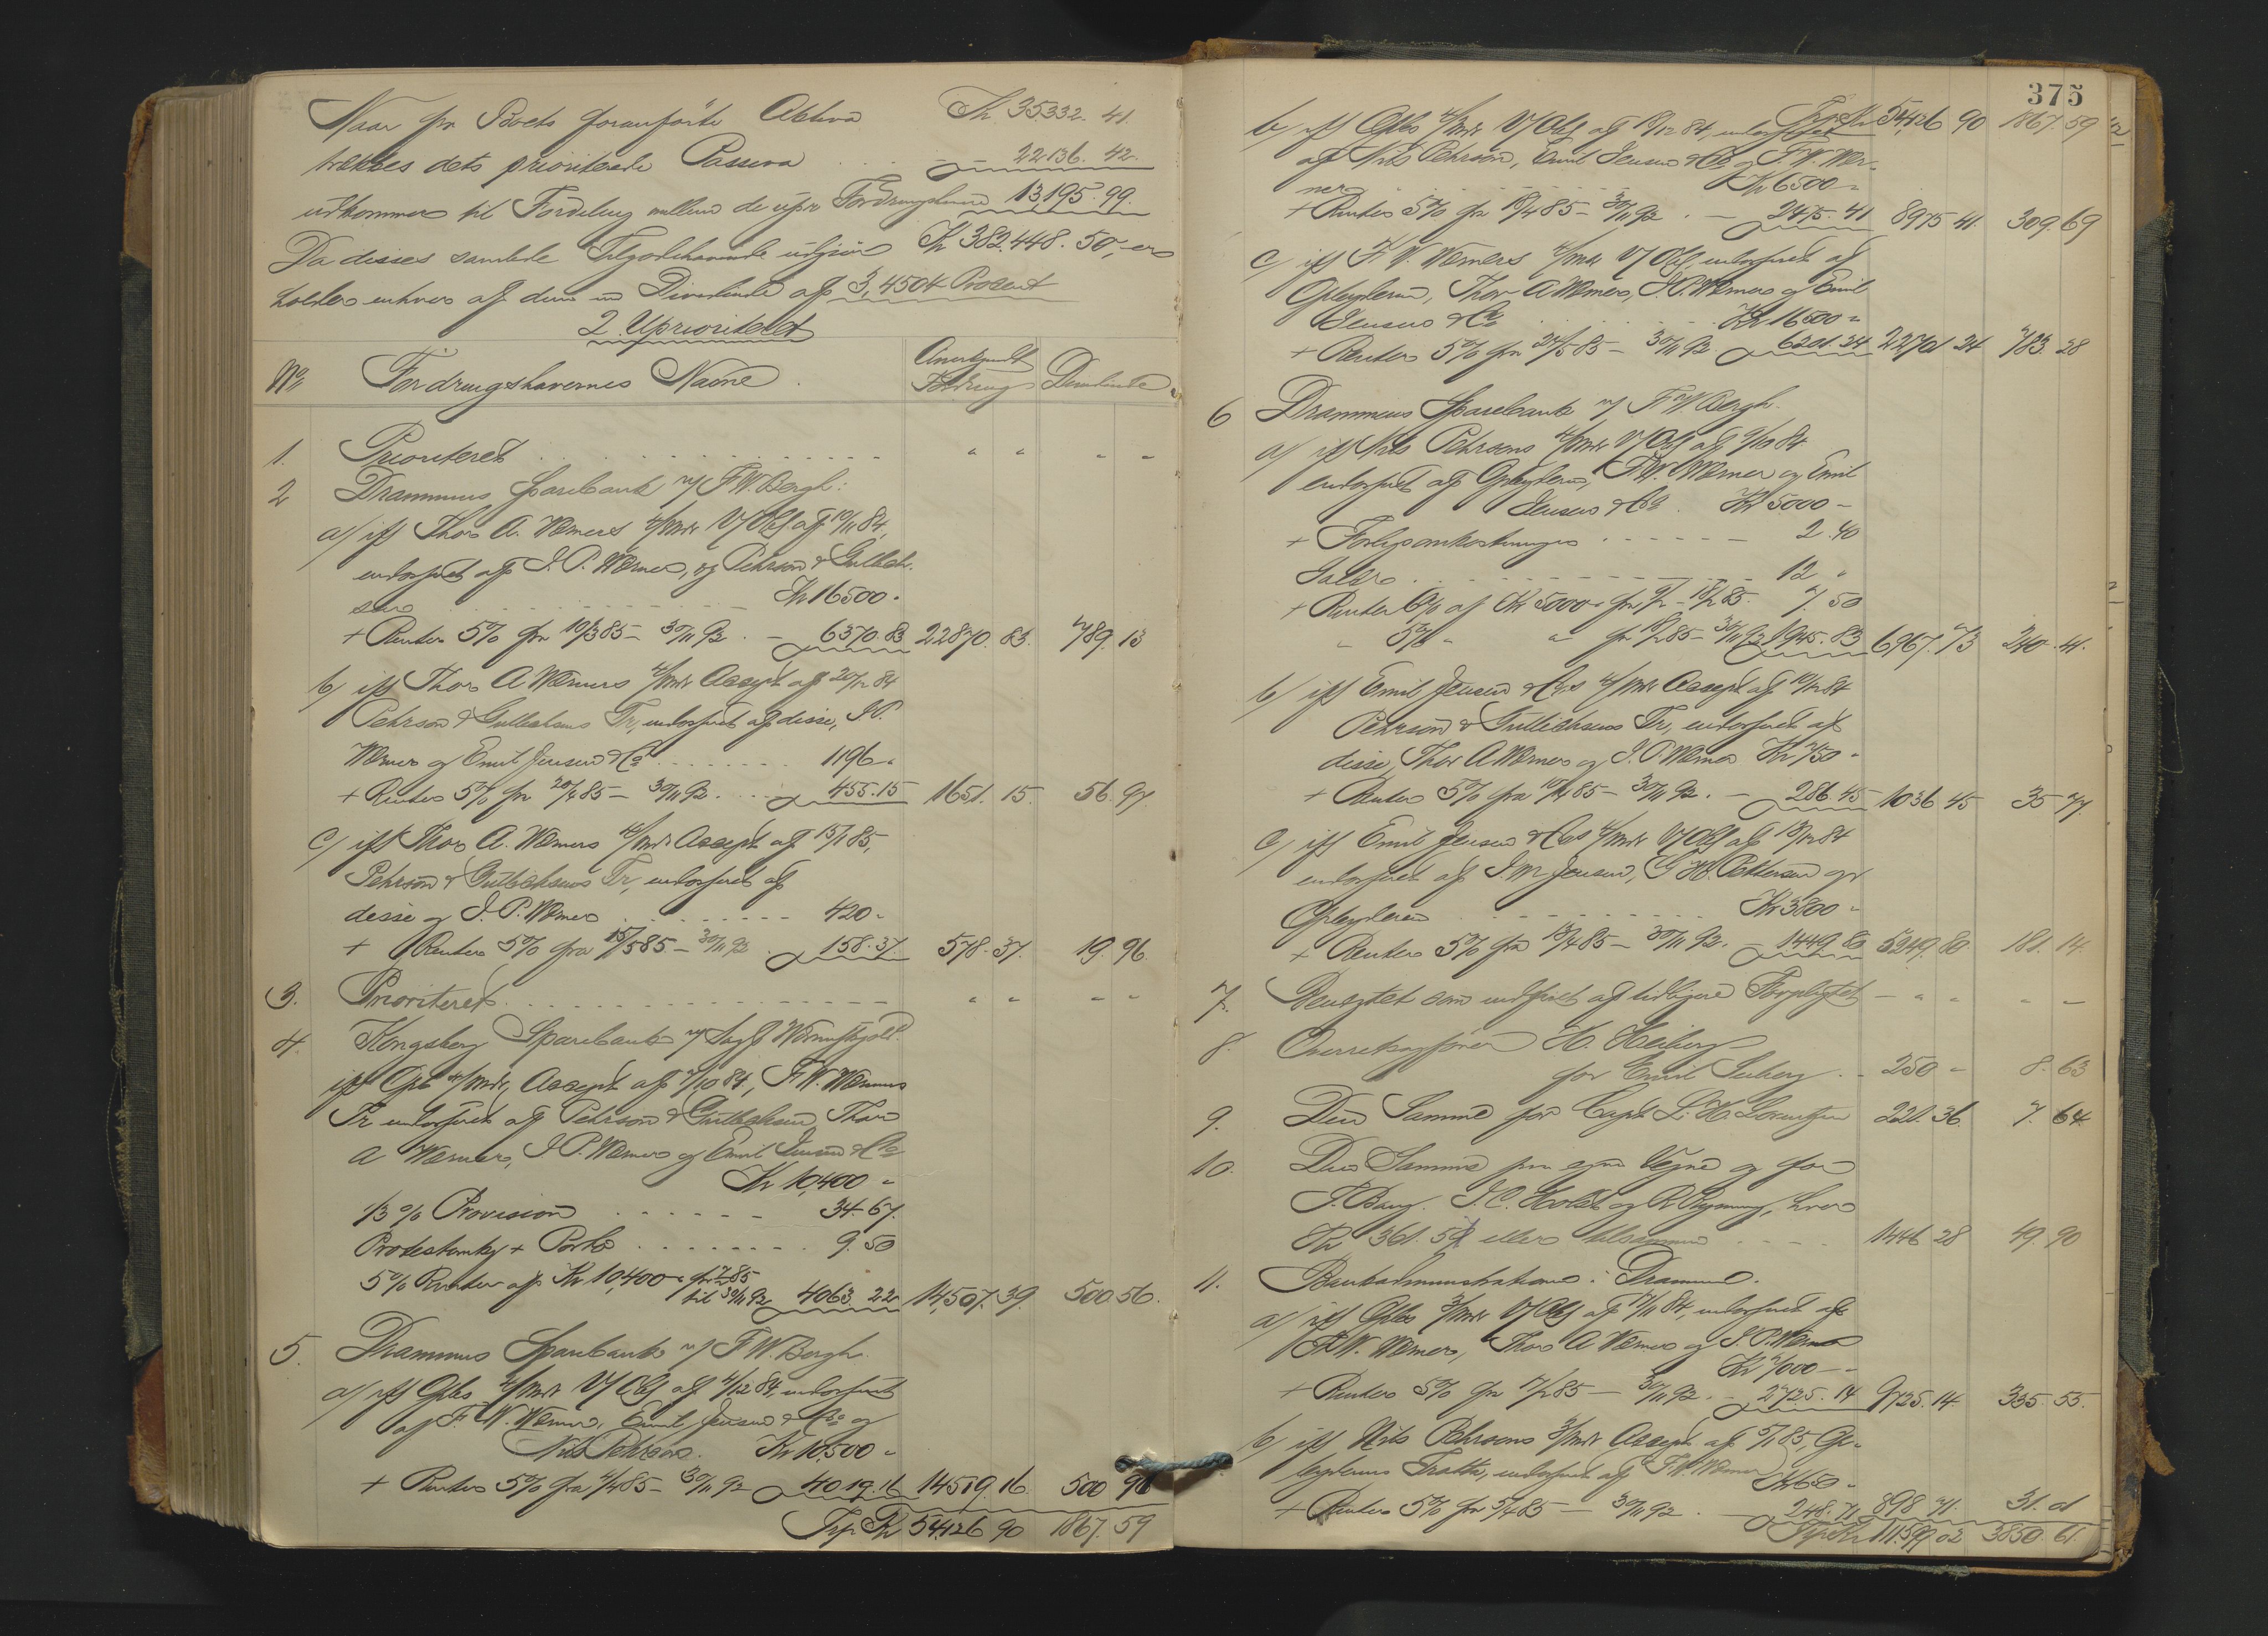 Naar fra Boets foranförte Aktiva Kr. 35.332. 41.
trækkes dets prioriterede Passiva . . . — 22.136. 42.
udkommer til Fordeling mellem de upr Fordringshavere 13,195. 99.
Da disses samlede Tilgodehavende udgjör Kr 382.448. 50, er
holder enhver af dem en Dividende af 3,4504 Procent
2 Uprioriteret
No Fordringshavernes Navne. Anerkjendt Fordring Dividende
1. Prioriteret . . . . " " - -
2 Drammens Sparebank v/ F. W. Bergh:
a/ iflg Thor A. Wærners 4/mdr V/Obl. af 10/11 84,
endosseret af J. P. Wærner, og Pehrson & Gulliks-
sen . . . Kr 16500.
+ Renter 5% fra 10/3 85 - 30/11 92. — 6370. 83 22870. 83. 789. 13
b/ iflg Thor A Wærners 4/mdr Accept af 20/12 84
Pehrson & Gulliksens Tr, endosseret af disse, J. P.
Wærner og Emil Jensen & Co . . . 1196 "
+ Renter 5% fra 20/4 85 - 30/11 92. . . 455. 15 1651. 15. 56. 97
c/ iflg Thor A. Wærners 4/mdr Accept af 15/1 85,
Pehrson & Gulliksens Tr, endosseret af
disse og J. P. Wærner . . . 420 "
+ Renter 5% fra 15/5 85 - 30/11 92 . 158. 37. 578. 37. 19. 96.
3. Prioriteret . . . " " - -
4. Kongsberg Sparebank v/ Sagf
iflg Gpls 4/mdr, Accept af 7/10 84, F. W. Wærners
Tr endosseret af Pehrson & Gulliksen, Thor
A Wærner, J. P. Wærner og Emil Jensen & Co
Kr 10,400 "
1/3 % Provision . . . 34. 67.
Protestomkg + Porto . . . 9. 50
5% Renter af Kr 10,400 " fra 7/2 85
til 30/11 92 4063. 22 14,507. 39. 500. 56.
5. Drammens Sparebank v/ F. W. Bergh.
a/ iflg Gpls 4/mdr V/Obl af 4/12 84, endosseret
af F. W. Wærner, Emil Jensen & Co og
Nils Pehrson. Kr 10,500 "
+ Renter 5% fra 4/4 85 - 30/11 92 4019. 16 14519. 16. 500 98
Trp Kr 54126 90 1867. 59
375
Trp Kr 54,126 90 1867. 59
b/ iflg Gpls 4/mdr V/Obl af 18/12 84, endosseret
af Nils Pehrson, Emil Jensen & Co og F. W. Wær-
ner . . . Kr 6500 "
+ Renter 5% fra 18/4 85 - 30/11 92 . — 2475. 41 8975 41. 309. 69
c/ iflg F. W. Wærners 4/mdr V/Obl, endosseret af
Gpleyderen, Thor A Wærner, J. P. Wærner og Emil
Jensen & Co . . . Kr. 16500 "
+ Renter 5% fra 24/5 85 - 30/11 92 6201. 24 22701 24 783. 28
6 Drammens Sparebank v/ F. W. Bergh.
a/ iflg Nils Pehrsons 4/mdr V/Obl af 9/10 84
endosseret af Gpleyderen, F. W. Wærner og Emil
Jensen & Co . Kr 5000 -
+ Forligsomkostninger . . . 2. 40
Salær . . . 12 "
+ Renter 6% af Kr 5000 " fra 9/2 - 18/2 85. 7. 50
" 5% " " fra 18/2 85 - 30/11 92 1945. 83 6967. 73 240. 41.
b/ iflg Emil Jensen & Cos 4/mdr Accept af 10/12 84
Pehrson & Gulliksens Tr, endosseret af
disse, Thor A Wærner og J. P. Wærner Kr. 750 "
+ Renter 5% fra 10/4 85 - 30/11 92. — 286. 45 1036 45 35 77.
c/ iflg Emil Jensen & Cos 4/mdr V/Obl af 13/12 84
endosseret af J. M. Jensen, G. H. Pettersen og
Gpleyderen . . . Kr 3800 "
+ Renter 5% fra 13/4 85 - 30/11 92. — 1449. 80 5249. 80 181. 14.
7. Benyttet som indfriet af tidligere Forpligtet - " " " -
8. Overretssagförer H. Heiberg
for Emil . . 250 - 8. 63
9. Den Samme for Capt L. H. Lorentzen 221. 36 7. 64.
10. Den Samme paa egne Vegne og for
J. Borg. J. C. Holst og R Rynning, hver
Kr 361. 57 eller tilsammen . . . 1446 28 49. 90
11. Bankadministrationen i Drammen.
a/ iflg Gpls 3/mdr V/Obl af 17/11 84, endosseret af
F. W. Wærner, Thor A Wærner og J. P. Wærner
Kr 7000 - "
+ Renter 5% fra 17/2 85 - 30/11 92. - 2725. 14 9725. 14. 335. 55.
b/ iflg Nils Pehrsons 3/mdr Accept af 5/1 85, Gp-
leyderens Tratte, endosseret af F. W. Wærner
Kr 650 "
+ Renter 5% fra 5/4 85 - 30/11 92 . 248. 71 898 71. 31. 01
Trp Kr 111,599 02 3850. 61.